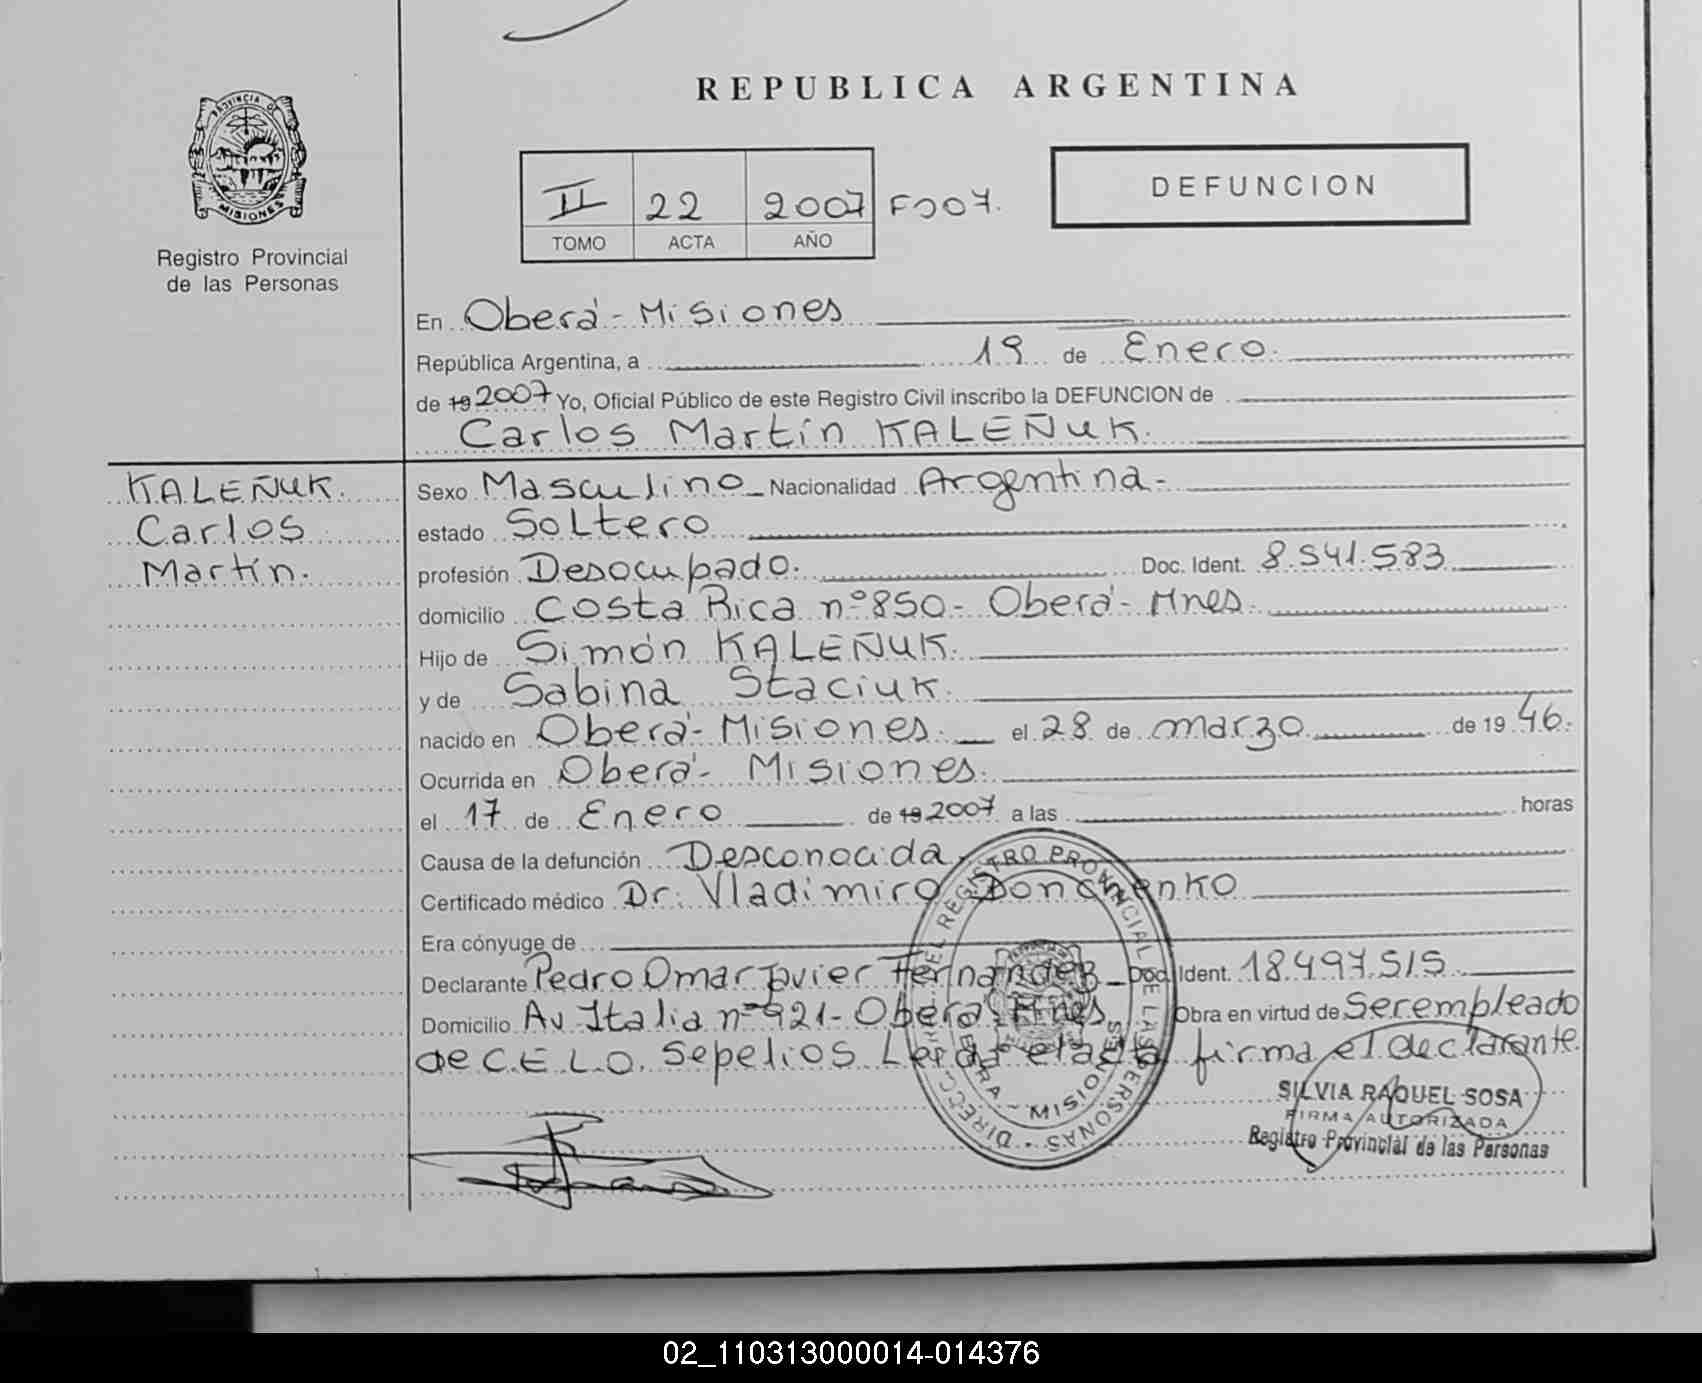 REPUBLICA ARGENTINA
PROVINCIA DE
MISIONES
Registro Provincial
de las Personas
II 22 2007 F007.
TOMO ACTA AÑO
DEFUNCION
En Oberá - Misiones
República Argentina, a 19 de Enero.
de 19 2007 Yo, Oficial Público de este Registro Civil inscribo la DEFUNCION de
Carlos Martín KALEÑUK.
KALEÑUK.
Carlos
Martín.
Sexo Masculino Nacionalidad Argentina-
estado Soltero
profesión Desocupado. Doc. Ident. 8.541.583
domicilio Costa Rica nº 850- Oberá- Mnes.
Hijo de Simón KALEÑUK.
y de Sabina Staciuk.
nacido en Oberá- Misiones. el 28 de marzo de 19 46.
Ocurrida en Oberá- Misiones.
el 17 de Enero de 19 2007 a las horas
Causa de la defunción Desconocida
Certificado médico Dr. Vladimiro Donchenko
Era cónyuge de
Declarante Pedro Omar Javier Fernandez Doc. Ident. 18.497.515
Domicilio Av Italia nº 921- Oberá Mnes Obra en virtud de Ser empleado
de C.E.L.O. Sepelios Leída el acta firma el declarante.
REGISTRO PROVINCIAL DE LAS PERSONAS
OBERA - MISIONES
SILVIA RAQUEL SOSA
FIRMA AUTORIZADA
Registro Provincial de las Personas
02_110313000014-014376